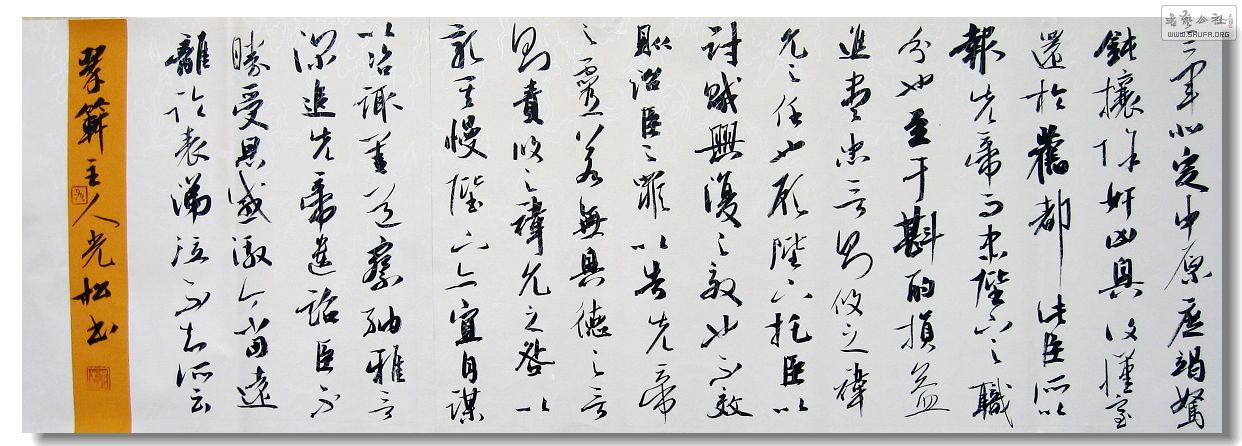 三軍北定中原庶竭駑
鈍攘除奸凶興復漢室
還於舊都此臣所以
報先帝而忠陛下之職
分也至于斟酌損益
進盡忠言則攸之禕
允之任也願陛下托臣以
討賊興復之效也不效
則治臣之罪以告先帝
之靈若無興德之言
則責攸之禕允之咎以
彰其慢陛下亦宜自謀
以咨諏善道察納雅言
深追先帝遺詔臣不
勝受恩感激今當遠
離臨表涕泣不知所云
主人光松书
书艺公社
WWW.SHUFA.ORG